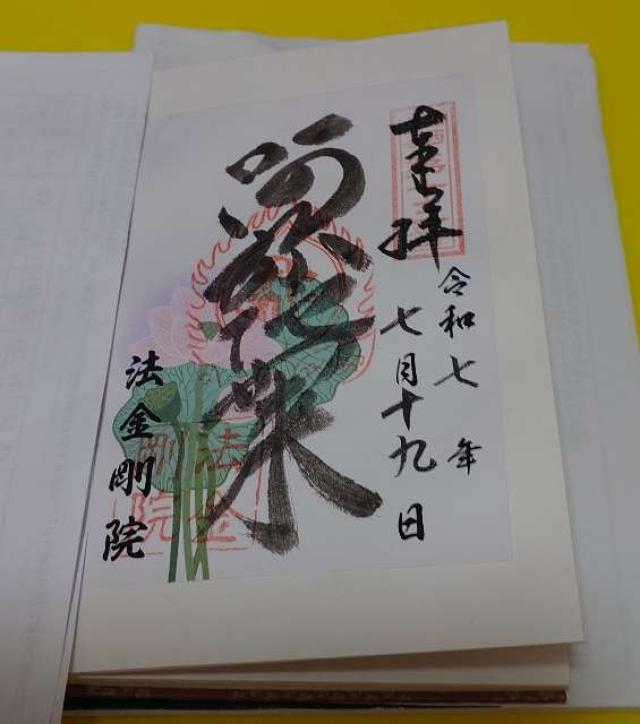 奉拝
令和七年
七月十九日
阿弥陀如来
法金剛院
法金
剛院